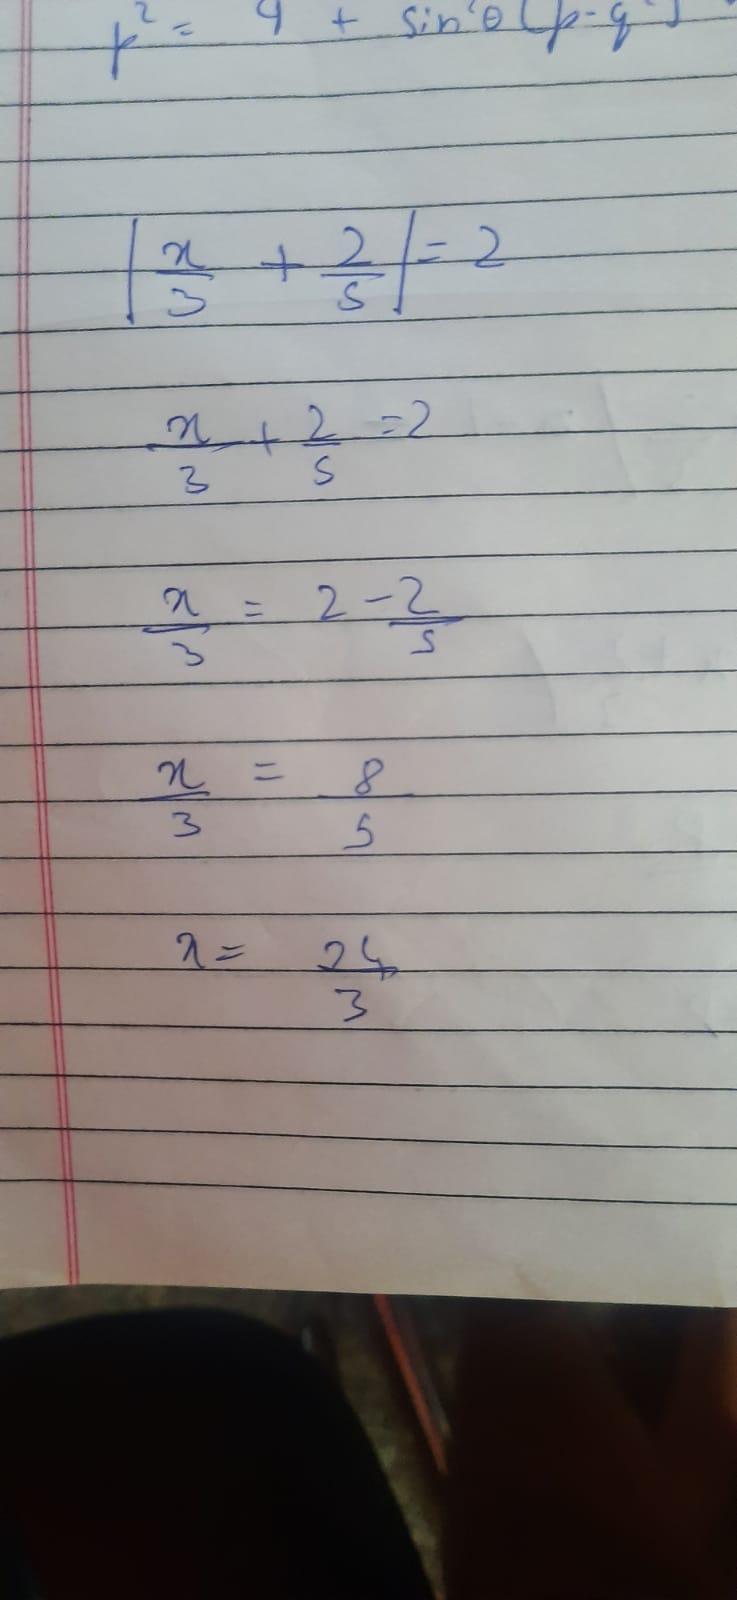 p² = q + sin²θ (p-q
|x/3 + 2/5| = 2
x/3 + 2/5 = 2
x/3 = 2 - 2/5
x/3 = 8/5
x = 24/3